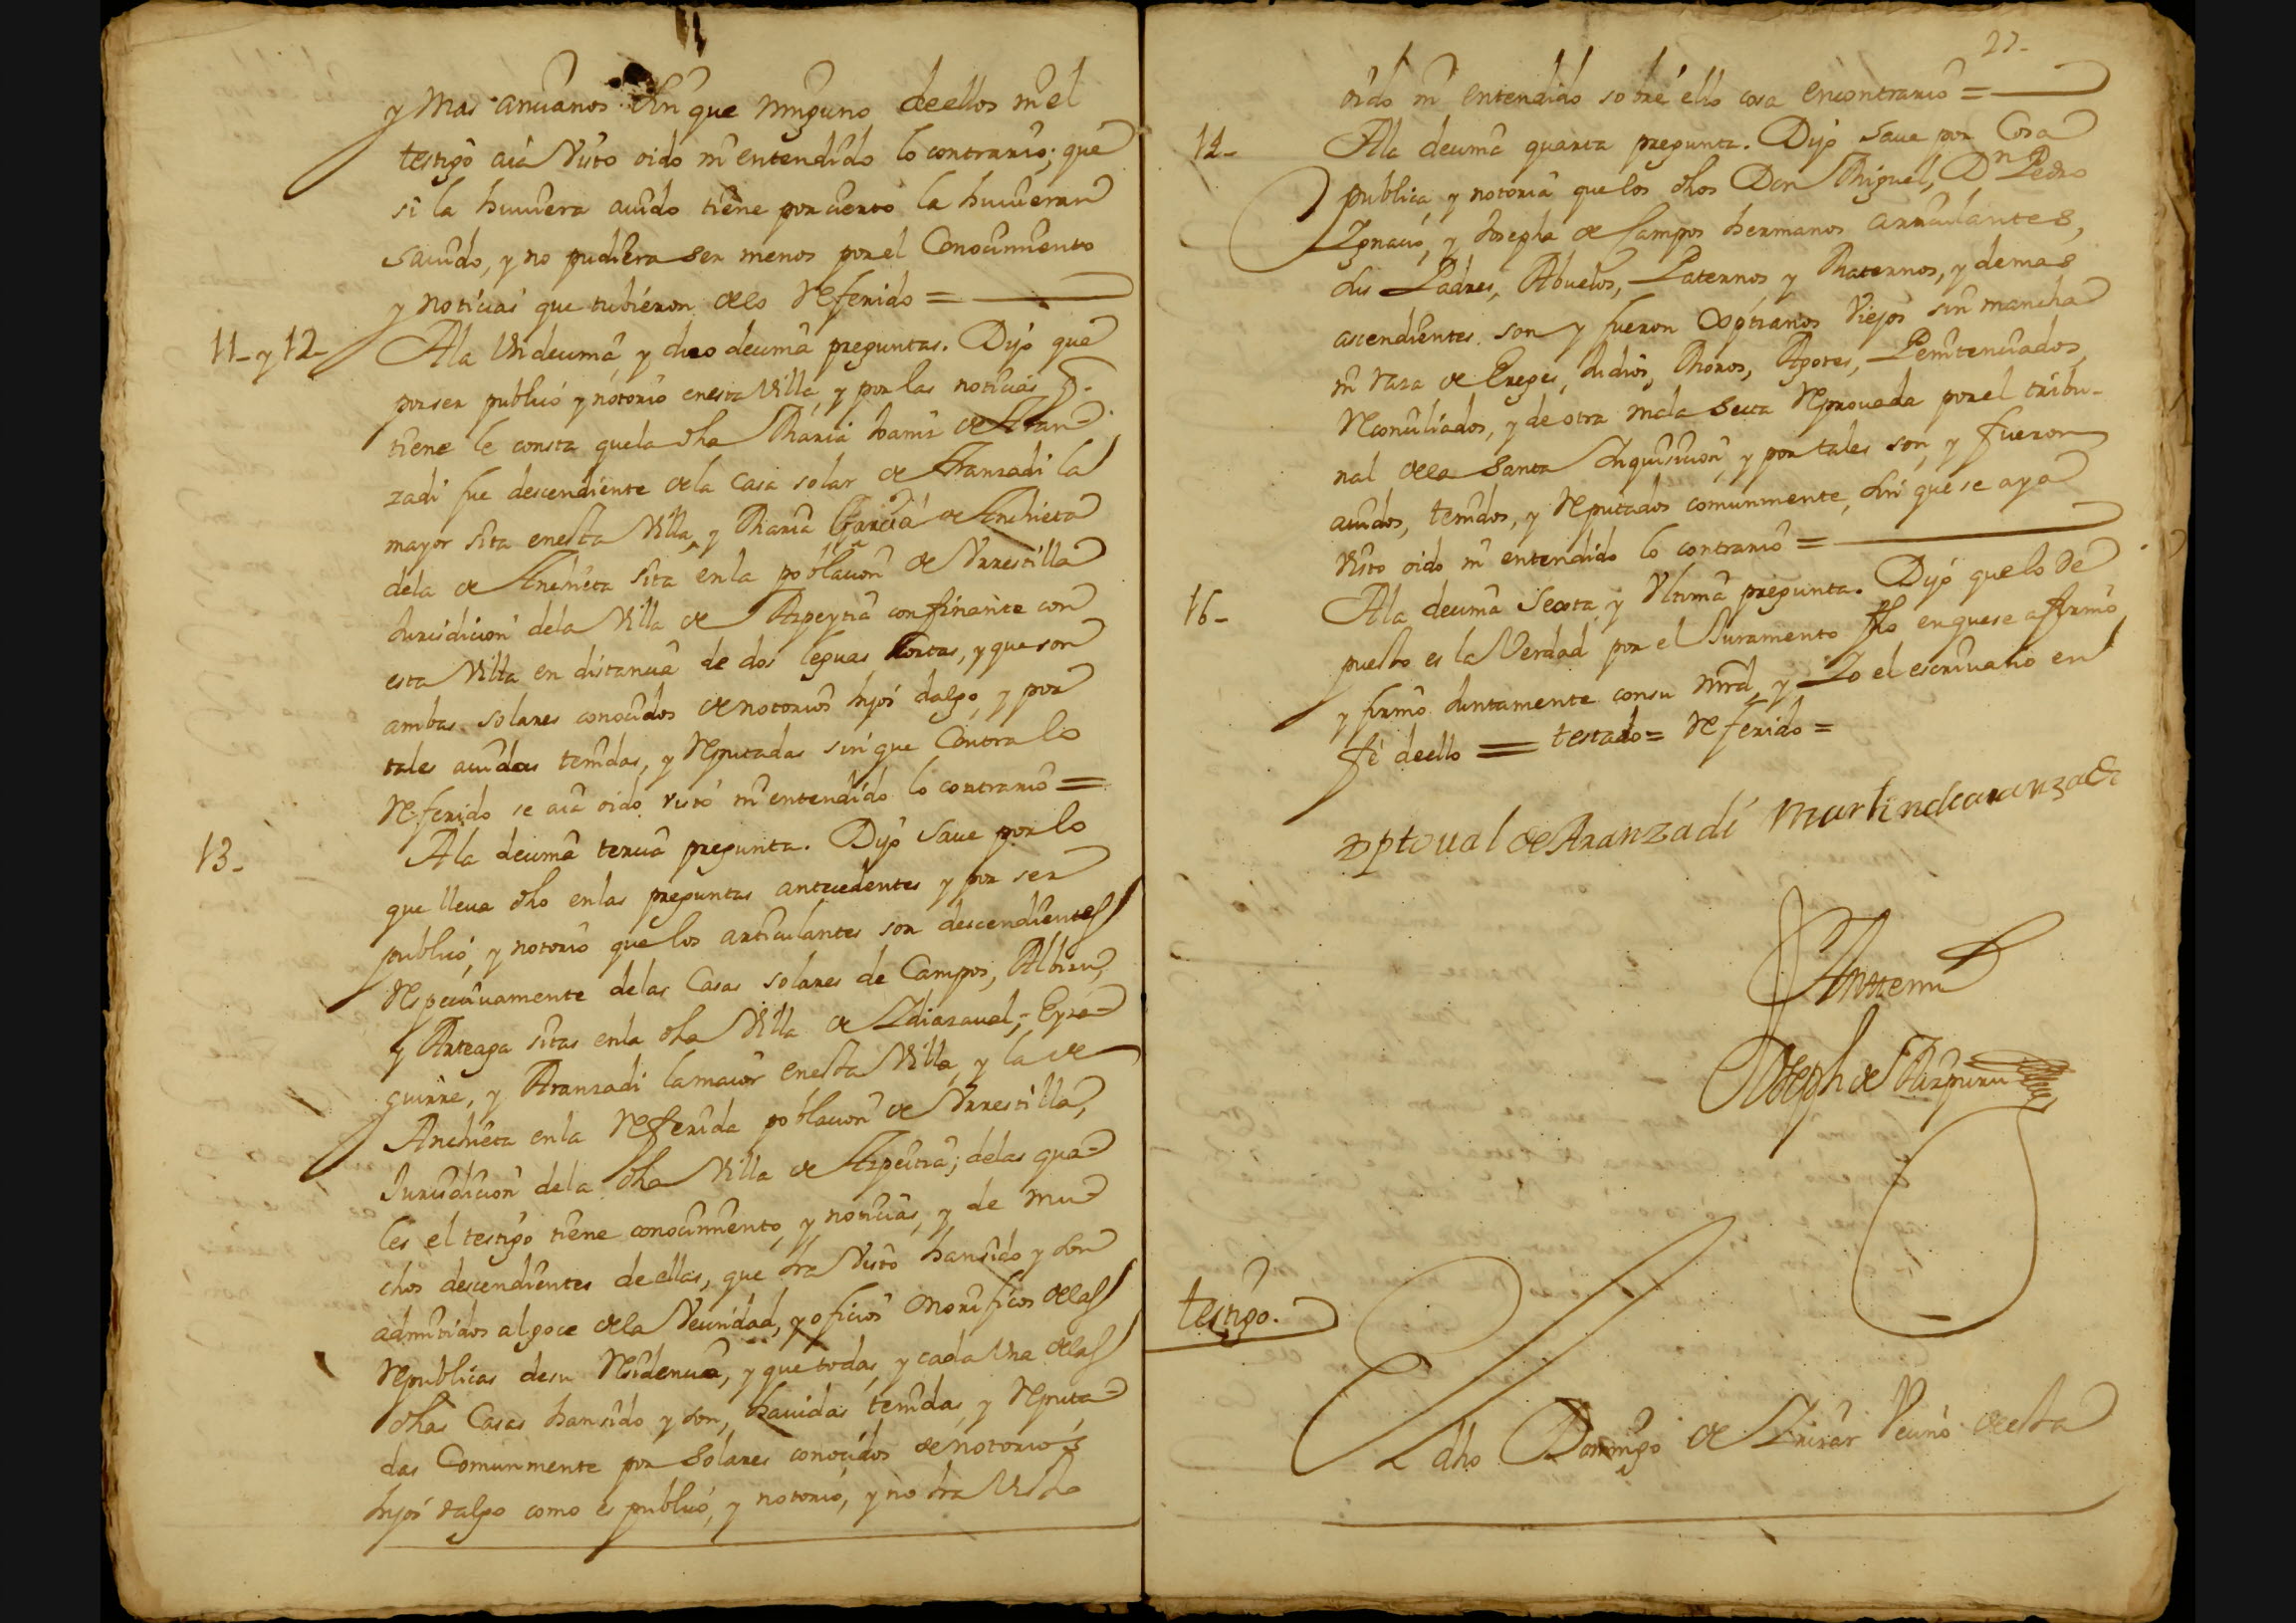 y mas ancianos sin que ninguno deellos ni el
testigo aia visto oido ni entendido lo contrario; que
si la huuiera auido tiene por cierto la huuieran
sauido, y no pudiera ser menos por el Conocimiento
y noticias que tubieron delo referido =
11- y 12- Ala Undecima, y duodecima preguntas. Dijo que
por ser publico y notorio enesta Villa, y por las noticias q.
tiene le consta que la dha Maria Joanis de Aran-
zadi fue descendiente dela Casa solar de Aranzadi la
mayor sita enesta Villa, y Maria Garcia de Anchieta
dela de Anchieta sita enla poblacion de Vrrestilla
Jurisdicion dela Villa de Azpeytia confinante con
esta Villa en distancia de dos leguas Cortas, y que son
ambas solares conocidos de notorios hijos dalgo, y por
tales auidas tenidas, y Reputadas sin que Contra lo
Referido se aia oido visto ni entendido lo contrario =
13- Ala decima tercia pregunta. Dijo Saue por lo
que lleua dho enlas preguntas antecedentes y por ser
publico, y notorio que los articulantes son descendientes
Respectiuamente delas Casas solares de Campos, Albizu,
y Arteaga sitas enla dha Villa de Idiazaual, Eyza-
guirre, y Aranzadi la maior enesta Villa, y la de
Anchieta enla Referida poblacion de Vrrestilla,
Jurisdicion dela dha Villa de Azpeitia; delas qua-
les el testigo tiene conocimiento, y noticias, y de mu-
chos descendientes de ellas, que ha Visto han sido y son
admitidos al goce dela Vecindad, y oficios onorificos delas
Republicas desu Residencia, y que todas, y cada Una delas
dhas Casas han sido y son, hauidas tenidas, y Reputa-
das Comunmente por Solares conocidos de notorios
hijos dalgo como es publico, y notorio, y no ha Visto
27-
oido ni entendido sobre ello cosa encontrario =
14- Ala decima quarta pregunta. Dijo Saue por Cosa
publica, y notoria que los dhos Don Miguel, Dn Pedro
Ignacio, y Josepha de Campos hermanos articulantes,
sus Padres, Abuelos, Paternos, y Maternos, y demas
ascendientes son y fueron Xptianos Viejos sin mancha
ni raza de Ereges, Judios, Moros, Agotes, Penitenciados,
Reconciliados, y de otra mala Secta Reprouada por el tribu-
nal dela Santa Inquisicion, y por tales son, y fueron
auidos, tenidos, y Reputados comunmente, sin que se aya
Visto oido ni entendido lo contrario =
16- Ala decima Sexta, y Vltima pregunta. Dijo que lo de
puesto es la Verdad por el Juramento fho, en que se affirmo,
y firmo Juntamente con su mrd, y Yo el escriuano en
fe de ello = testado = Referido =
Xptoual de Aranzadi Martin de aranzadi
Ante mi
Joseph de Aizpuru
testigo.
El dho Domingo de Irizar Vecino de esta